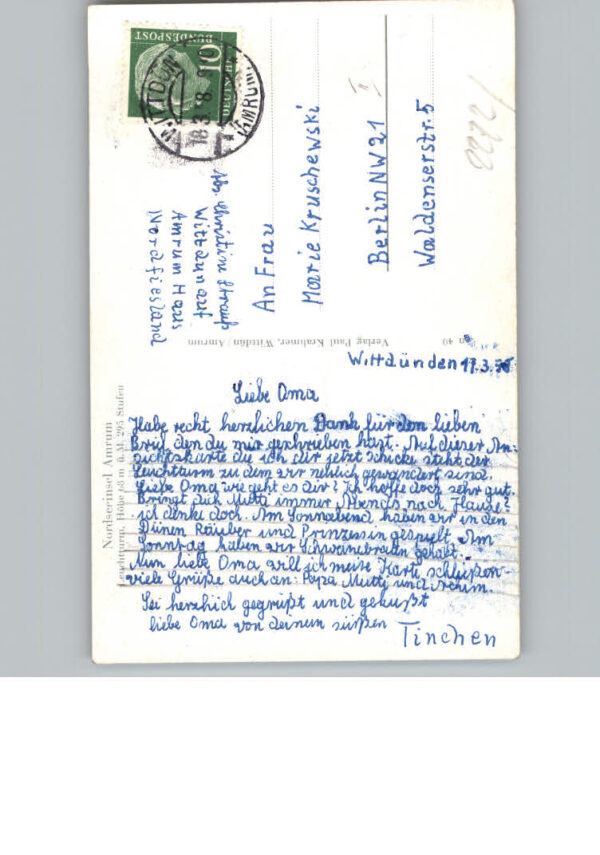 DEUTSCHE
BUNDESPOST
10
WITTDÜN
18.3.58
(AMRUM)
2272/
II
An Frau
Marie Kruschewski
Berlin NW 21
Waldenserstr. 5
Abs. Christin Strauß
Wittdün auf
Amrum Haus
Nordfiesland
Verlag Paul Krahmer, Wittdün/Amrum
40
Nordseeinsel Amrum
Leuchtturm, Höhe 68 m ü. M. 295 Stufen
Wittdünden 17.3.58
Liebe Oma
Habe recht herzlichen Dank für den lieben
Brief, den du mir geschrieben hast. Auf dieser An-
sichtskarte die ich dir jetzt schicke steht der
Leuchtturm zu dem wir neulich gewandert sind.
Liebe Oma wie geht es dir? Ich hoffe doch sehr gut.
Bringt dich Mutti immer Abends nach Hause?
ich denke doch. Am Sonnabend haben wir in den
Dünen Räuber und Prinzessin gespielt. Am
Sonntag haben wir Schweinebraten gehabt.
Nun liebe Oma will ich meine Karte schlißen
viele Grüße auch an: Papa Mutti und Achim.
Sei herzlich gegrüßt und geküßt
liebe Oma von deinem süßen Tinchen